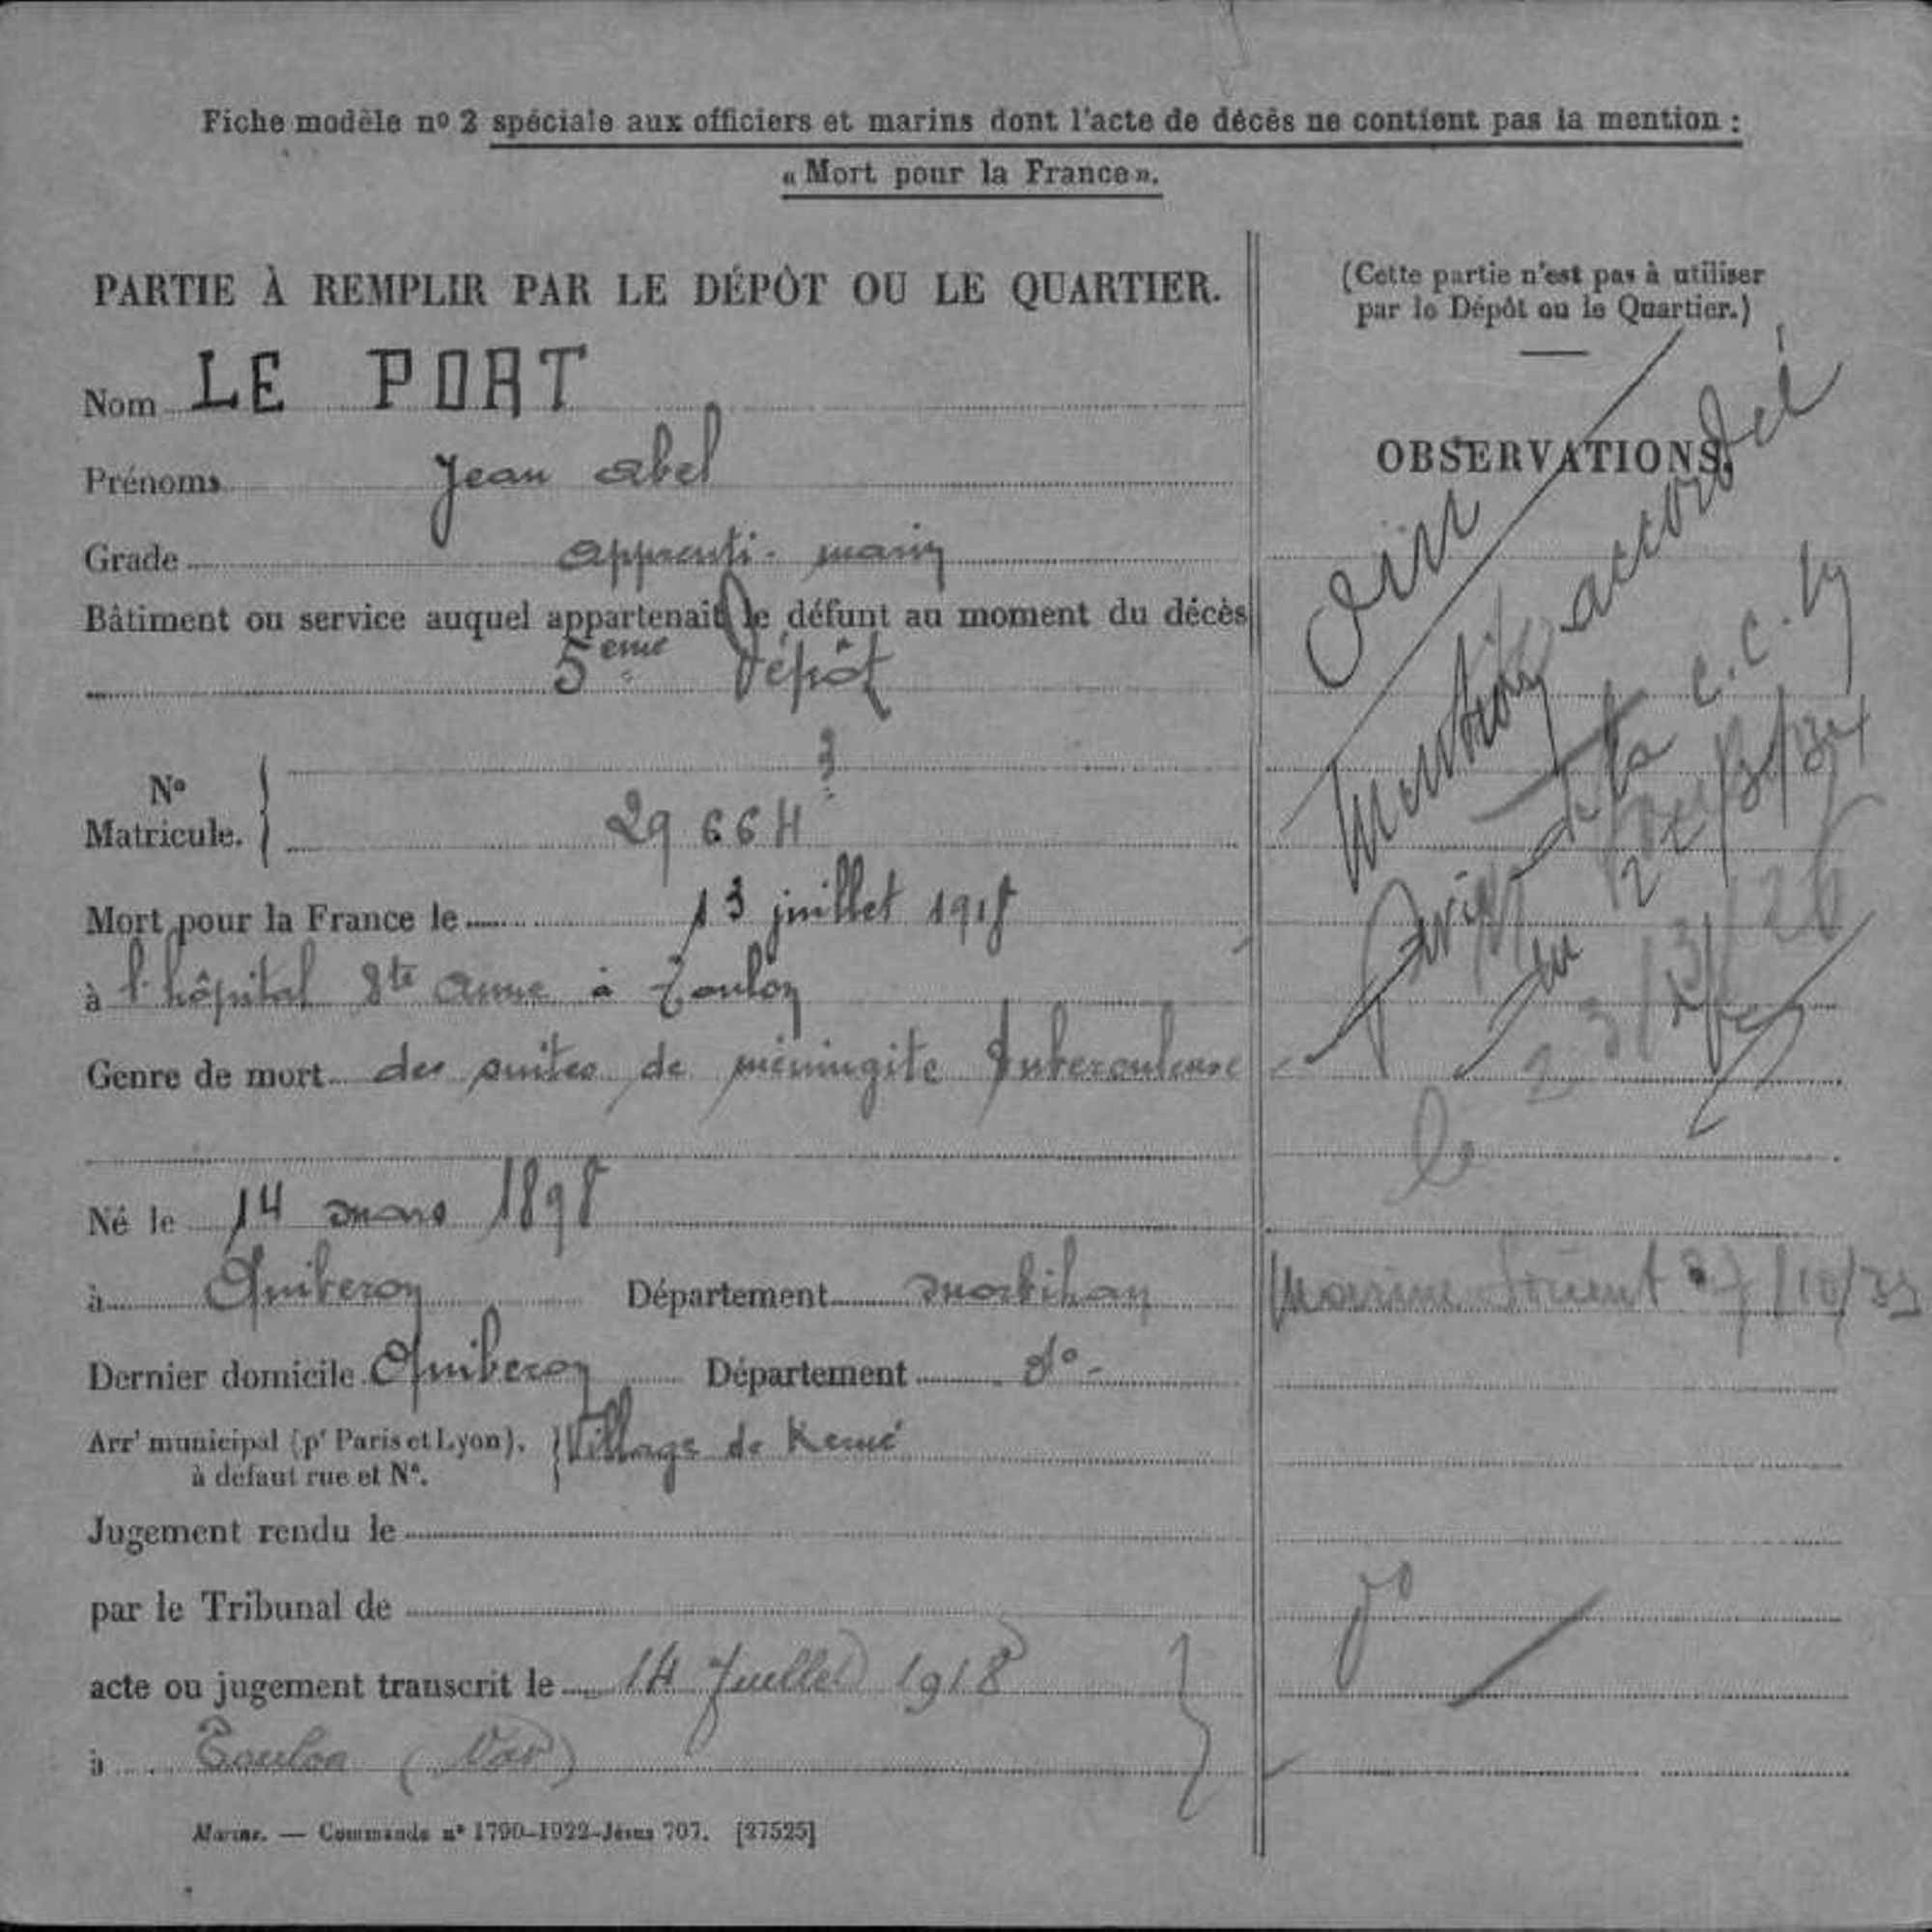 Fiche modèle nº 2 spéciale aux officiers et marins dont l'acte de décès ne contient pas la mention :
« Mort pour la France ».
PARTIE À REMPLIR PAR LE DÉPÔT OU LE QUARTIER.
Nom LE PORT
Prénoms Jean Abel
Grade apprenti-marin
Bâtiment ou service auquel appartenait le défunt au moment du décès
5eme Dépôt
3
Nº
Matricule. 29664
Mort pour la France le 13 juillet 1918
à l'hôpital Ste Anne à Toulon
Genre de mort des suites de méningite tuberculeuse
Né le 14 mars 1898
à Quiberon Département Morbihan
Dernier domicile Quiberon Département dº -
Arrt municipal (pr Paris et Lyon), à défaut rue et Nº. Village de Kerné
Jugement rendu le
par le Tribunal de
acte ou jugement transcrit le 14 Juillet 1918
à Toulon (Var)
Marine. — Commande nº 1790-1922-Jésus 707. [27525]
(Cette partie n'est pas à utiliser
par le Dépôt ou le Quartier.)
OBSERVATIONS.
Mention accordée
Avis de la C.C.
du
le
Marine Lorient 27/10/33